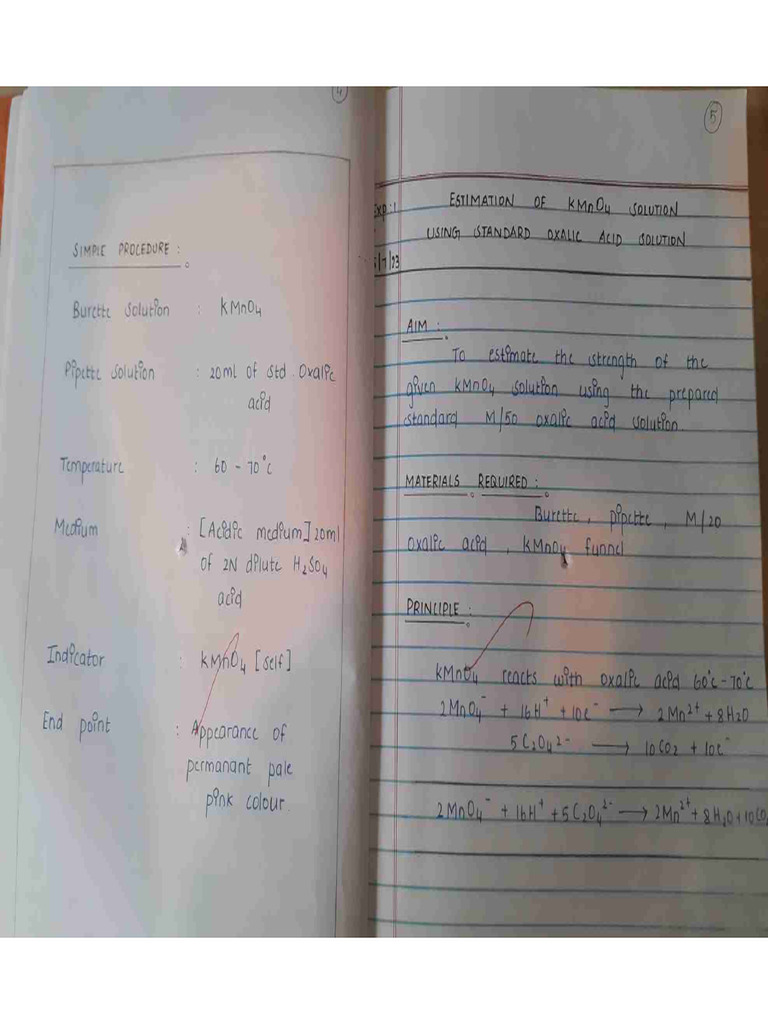 4
SIMPLE PROCEDURE :
Burette solution : KMnO4
Pipette solution : 20ml of std Oxalic
acid
Temperature : 60 - 70°c
Medium : [Acidic medium] 20ml
of 2N dilute H2SO4
acid
Indicator : KMnO4 [self]
End point : Appearance of
permanant pale
pink colour.
5
Exp:1 ESTIMATION OF KMnO4 SOLUTION
USING STANDARD OXALIC ACID SOLUTION
/7/23
AIM :
To estimate the strength of the
given KMnO4 solution using the prepared
standard M/50 oxalic acid solution
MATERIALS REQUIRED :
Burette, pipette, M/20
oxalic acid, KMnO4 funnel
PRINCIPLE :
KMnO4 reacts with oxalic acid 60°c-70°c
2MnO4⁻ + 16H⁺ + 10e⁻ → 2Mn²⁺ + 8H2O
5C2O4²⁻ → 10CO2 + 10e⁻
2MnO4⁻ + 16H⁺ + 5C2O4²⁻ → 2Mn²⁺ + 8H2O + 10CO2